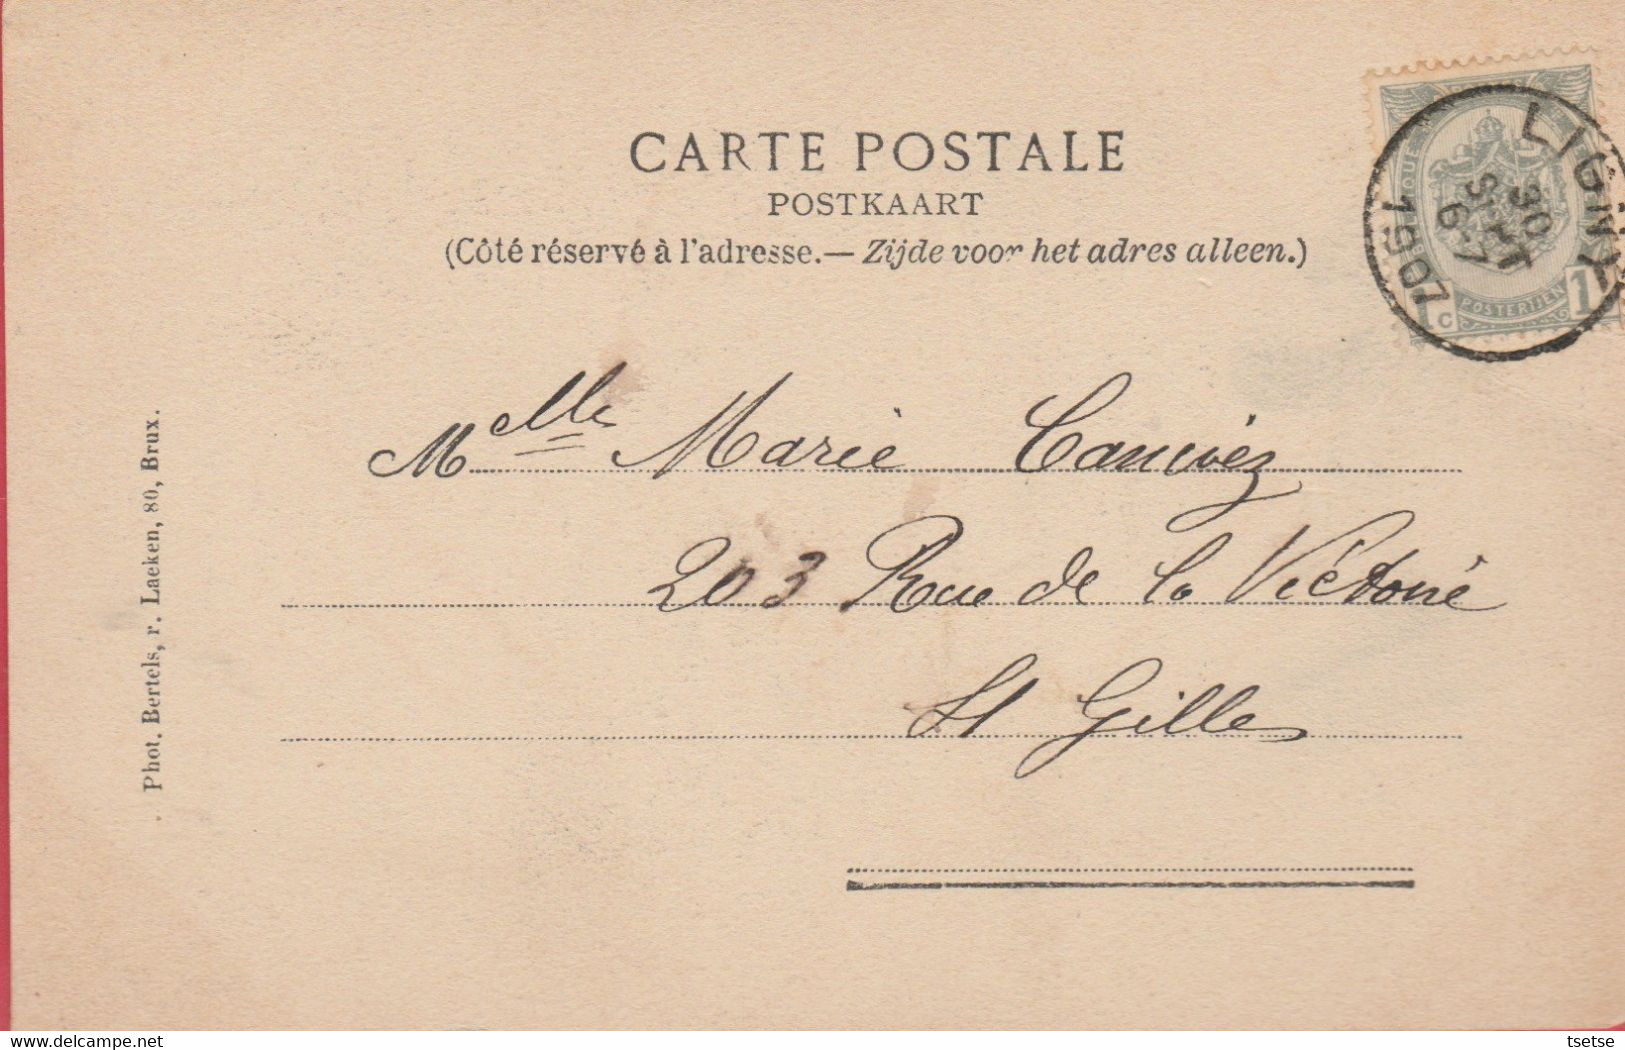 CARTE POSTALE
POSTKAART
(Côté réservé à l'adresse.— Zijde voor het adres alleen.)
LIGNY
30
SEPT
6-7
1907
POSTERIJEN
1c 1
Melle Marie Canivez
203 Rue de la Victoire
St Gilles
Phot. Bertels, r. Laeken, 80, Brux.
delcampe.net
tsetse